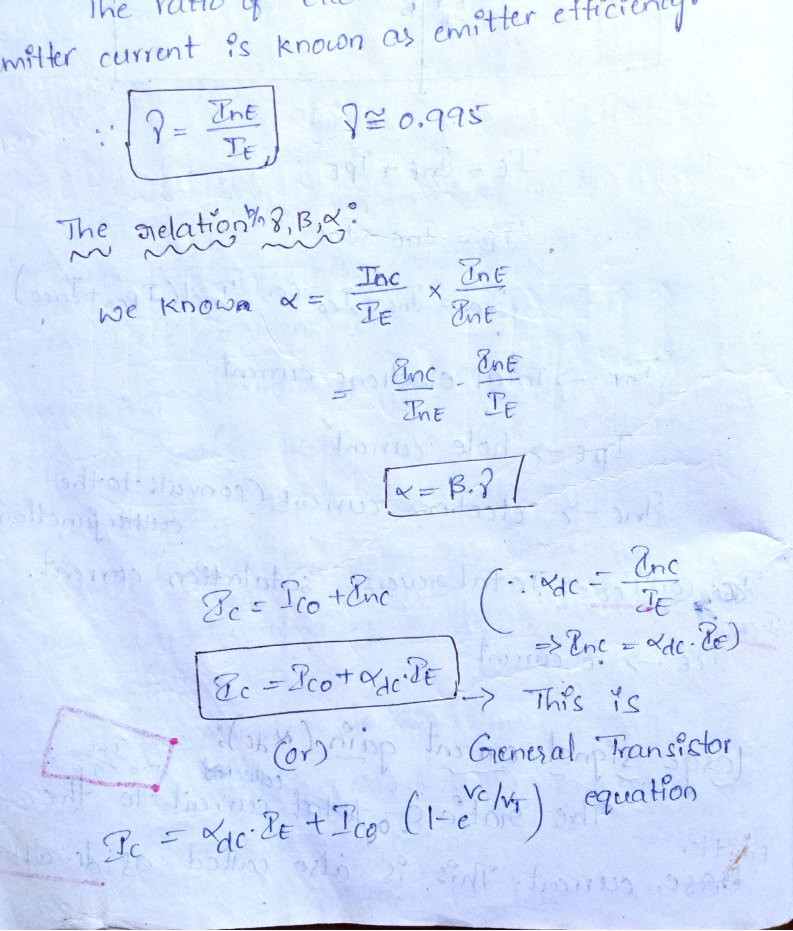 The ratio of
emitter current is known as emitter efficiency.
∵ γ = InE / IE    γ ≅ 0.995
The relation b/n γ, β, α:
we known α = Inc / IE × InE / InE
= Inc / InE . InE / IE
α = β.γ
Ic = Ico + Inc    (∵ αdc = Inc / IE
=> Inc = αdc. IE)
Ic = Ico + αdc. IE → This is
(or) General Transistor
equation
Ic = αdc. IE + Ico (1-e^Vc/VT)